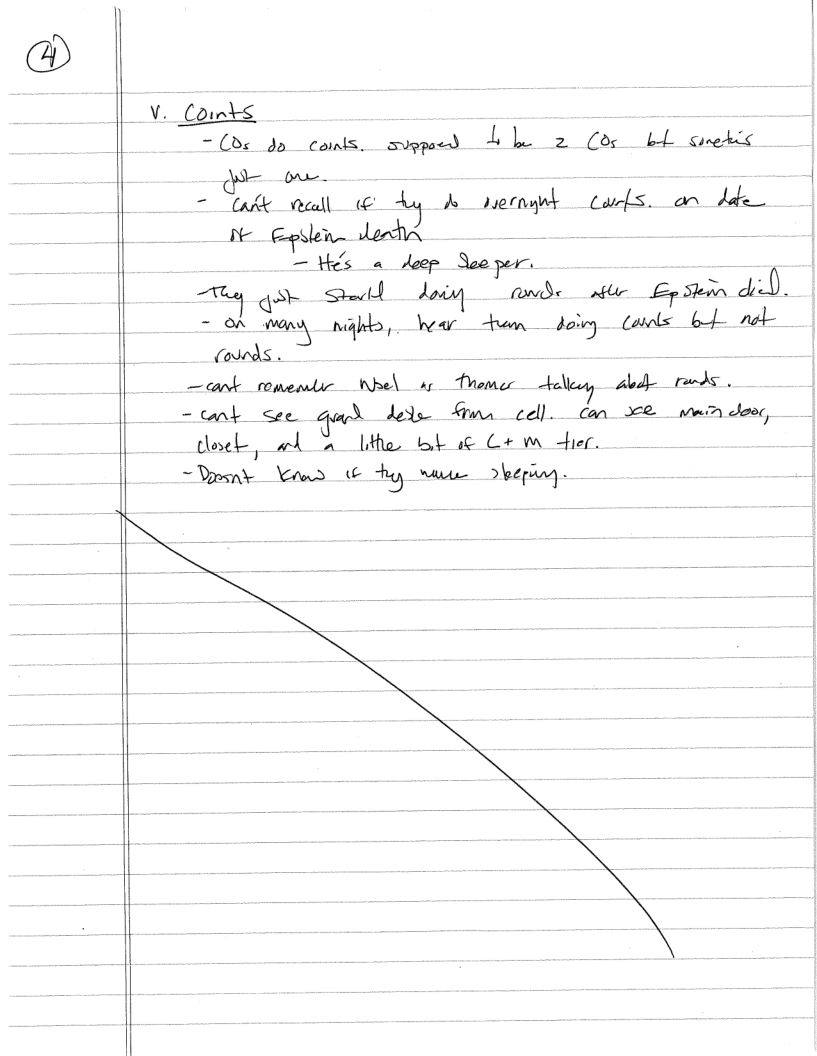 4
V. Counts
- COs do counts. supposed to be 2 COs but sometimes
just one.
- can't recall if they do overnight counts. on date
of Epstein death
- He's a deep sleeper.
- They just started doing rounds after Epstein died.
- on many nights, hear them doing counts but not
rounds.
- cant remember Noel or Thomas talking about rounds.
- cant see guard desk from cell. can see main door,
closet, and a little bit of L + M tier.
- Doesnt know if they were sleeping.